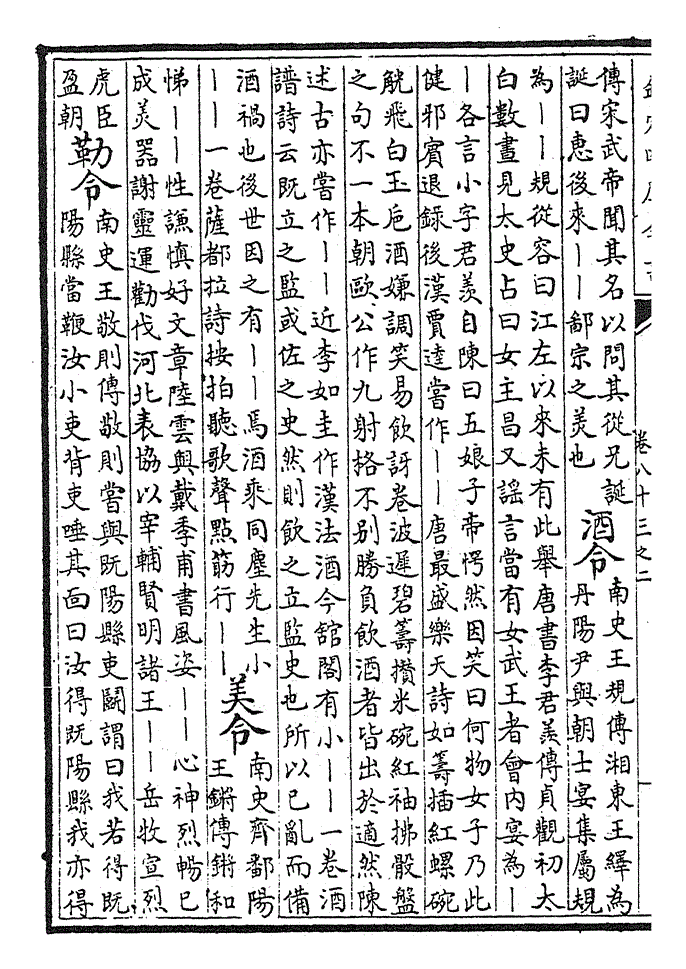 卷八十三之二
傳宋武帝聞其名以問其從兄誕
誕曰惠後來——鄙宗之美也
酒令
南史王規傳湘東王繹為
丹陽尹與朝士宴集屬規
為——規從容曰江左以來未有此舉唐書李君羨傳貞觀初太
白數晝見太史占曰女主昌又謠言當有女武王者會内宴為—
—各言小字君羨自陳曰五娘子帝愕然因笑曰何物女子乃此
健邪賓退録後漢賈逵嘗作——唐最盛樂天詩如籌插紅螺碗
觥飛白玉巵酒嫌調笑易飲訝卷波遲碧籌攢米碗紅袖拂骰盤
之句不一本朝歐公作九射格不别勝負飲酒者皆出於適然陳
述古亦嘗作——近李如圭作漢法酒今舘閣有小——一卷酒
譜詩云既立之監或佐之史然則飲之立監史也所以已亂而備
酒禍也後世因之有——焉酒乘同塵先生小
——一卷薩都拉詩按拍聽歌聲點筯行——
美令
南史齊鄱陽
王鏘傳鏘和
悌——性謙慎好文章陸雲與戴季甫書風姿——心神烈暢已
成美器謝靈運勸伐河北表協以宰輔賢明諸王——岳牧宣烈
虎臣
盈朝
勒令
南史王敬則傳敬則嘗與既陽縣吏鬬謂曰我若得既
陽縣當鞭汝小吏背吏唾其面曰汝得既陽縣我亦得